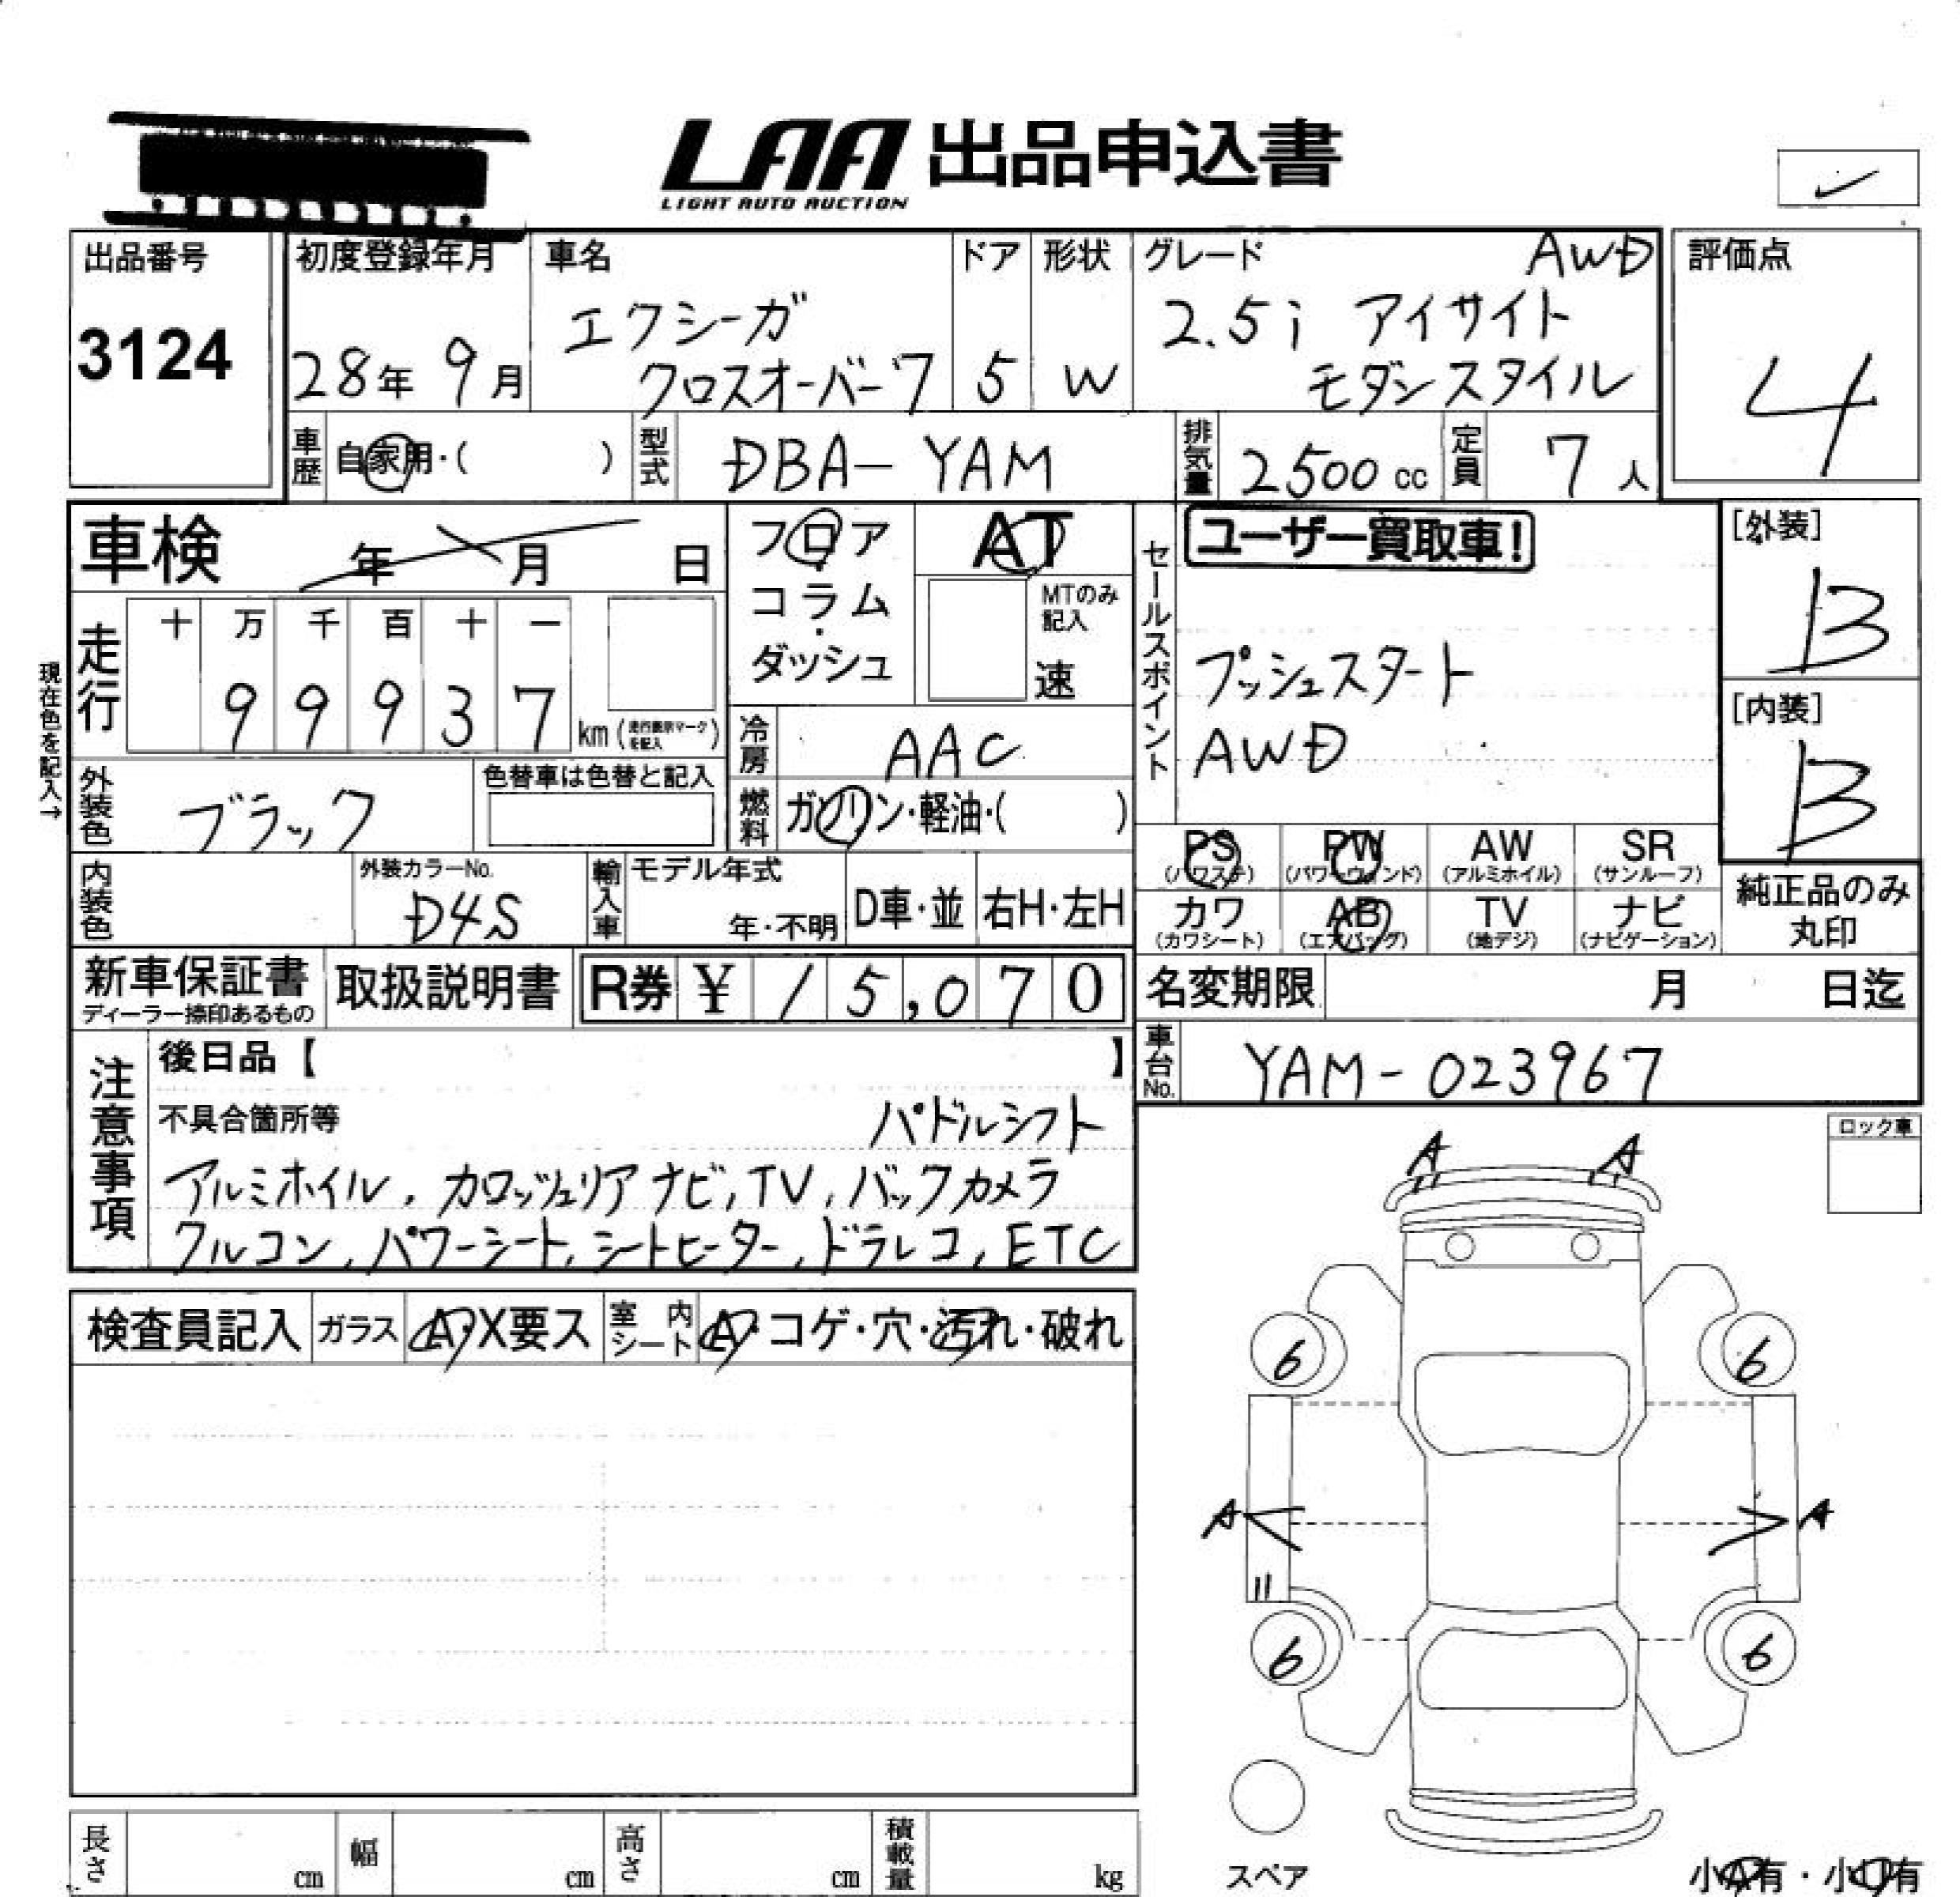 LAA 出品申込書
LIGHT AUTO AUCTION
出品番号
3124
初度登録年月
28年 9月
車名
エクシーガ
クロスオーバー7
ドア
5
形状
W
グレード AWD
2.5i アイサイト
モダンスタイル
評価点
4
車歴 自家用・( )
型式 DBA-YAM
排気量 2500 cc
定員 7人
車検 年 月 日
走行
十 万 千 百 十 一
9 9 9 3 7 km (走行表示マークを記入)
現在色を記入→
フロア
コラム
・
ダッシュ
AT
MTのみ
記入
速
冷房 AAC
燃料 ガソリン・軽油・( )
外装色 ブラック
色替車は色替と記入
内装色
外装カラーNo.
D4S
輸入車
モデル年式
年・不明
D車・並
右H・左H
セールスポイント
ユーザー買取車!
プッシュスタート
AWD
[外装]
B
[内装]
B
PS (パワステ) PW (パワーウィンド) AW (アルミホイル) SR (サンルーフ)
カワ (カワシート) AB (エアバッグ) TV (地デジ) ナビ (ナビゲーション)
純正品のみ
丸印
新車保証書
ディーラー捺印あるもの
取扱説明書
R券 ¥ 15,070
名変期限 月 日迄
車台No. YAM-023967
注意事項
後日品【 】
不具合箇所等 パドルシフト
アルミホイル, カロッツェリアナビ, TV, バックカメラ
クルコン, パワーシート, シートヒーター, ドラレコ, ETC
検査員記入
ガラス A・X要ス
室内
シート A・コゲ・穴・汚れ・破れ
ロック車
A A
6 6
A A
6 6
スペア
小A有・小U有
長さ cm
幅 cm
高さ cm
積載量 kg